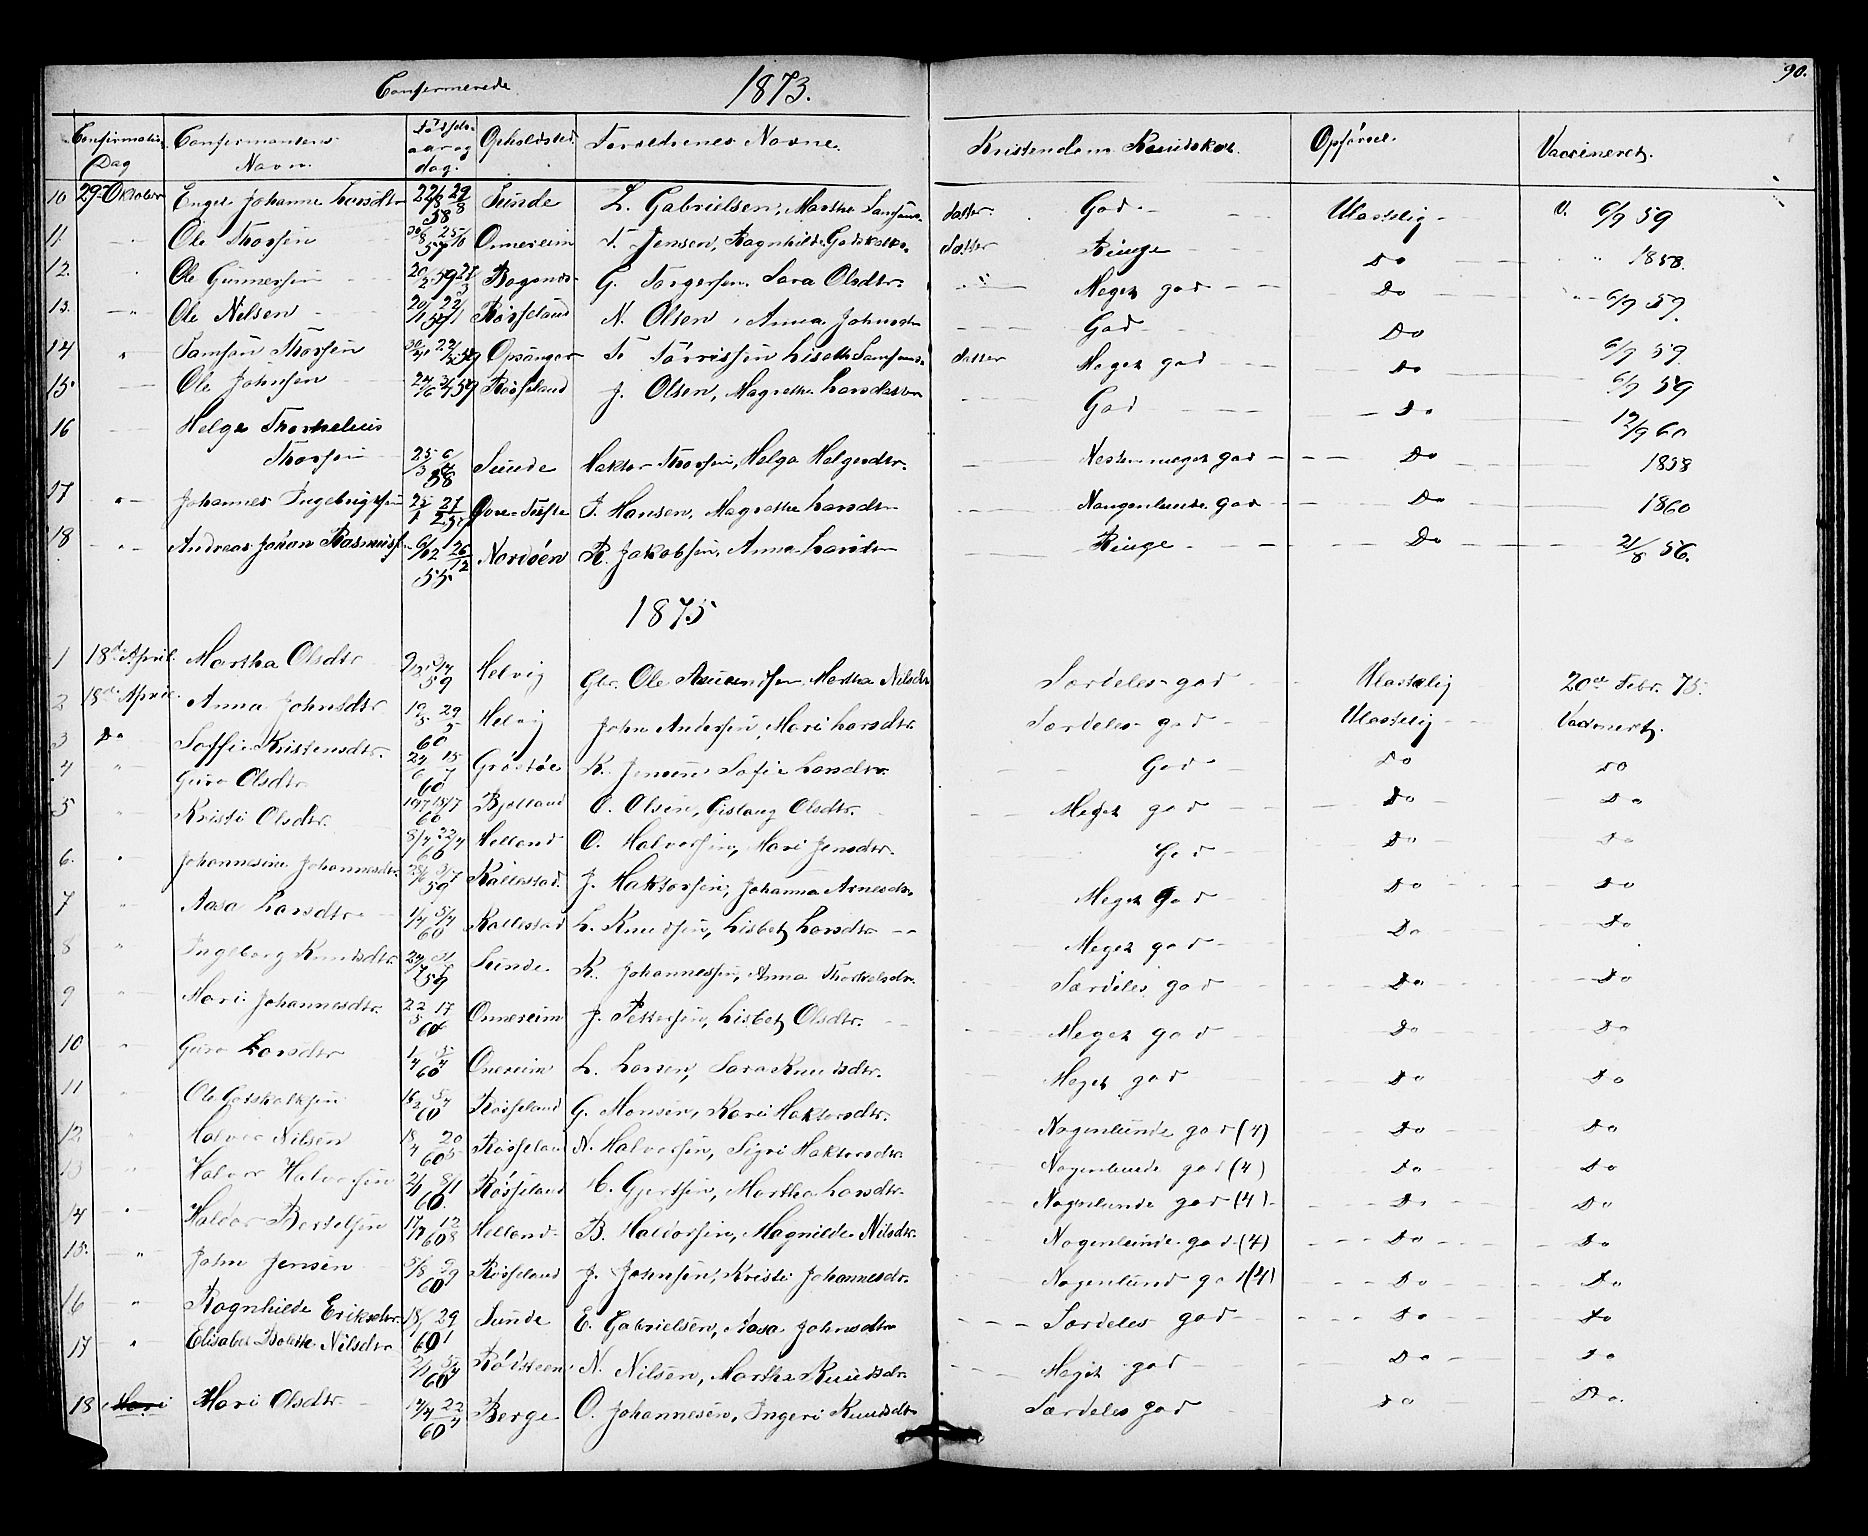 Confirmerede 1873. 90.
Confirmations Dag Confirmantens Navn. Fødsels aar og dag. Opholdsted Forældrenes Navne. Kristendoms Kundskab. Opførsel. Vaccineret.
10 29 Oktober Enger Johanne Larsdtr 58 Sunde L. Gabrielsen, Marthe Samsons datter. God Ulastelig V. 6/9 59
11. Ole Thorsen 57 Omereim T. Jensen, Ragnhilde Godskalks datter Ringe Do 1858.
12. Ole Gunnersen 59 G. Torgersen. Sara Olsdtr. Meget god Do 6/9 59.
13. Ole Nilsen 59 Røsseland N. Olsen, Anna Johnsdtr God Do 6/9 59.
14 Samson Thorsen 59 Opsanger T. Tørrissen Liseth Samsons datter Meget god Do 6/9 59
15 Ole Johnsen 59 Røsseland J. Olsen, Magrethe Larsdatter God Do 12/9 60
16 Helge Thorkelius
Thorsen 58 Sunde Haktor Thorsen, Helga Helgesdtr. Nesten meget god Do 1858
17 Johannes Ingebrigtsen Øvre-Tufte I. Hansen, Magrethe Larsdtr Nogenlunde god Do 1860
18 Andreas Johan Rasmuss. 55 Nordøen R. Jakobsen, Anna Larsdtr Ringe Do 21/8 56.
1875
1 18de April Martha Olsdtr 59 Helvig Gbr. Ole Amundsen Martha Nilsdtr Særdeles god Ulastelig 20de Febr. 75.
2 18de April. Anna Johnsdtr 60 Helvig John Andersen, Mari Larsdtr. Særdeles god Ulastelig Vaccineret.
3 Do Soffie Kristensdtr. 60 K. Jensen Sofie Larsdtr. God Do Do
4 Guro Olsdtr 60 Bjelland O. Olsen, Gislaug Olsdtr. Meget god Do Do
5 Kristi Olsdtr. 8/4 22/4 60 Helland O. Halvorsen, Mari Jensdtr. God Do Do
6. Johannesine Johannesdtr. 59 Kallestad. J. Haktorsen, Johanna Arnesdtr. Meget god Do Do
7 Aasa Larsdtr 60 Kallestad L. Knudsen, Lisbet Larsdtr Meget god Do Do
8 Ingeborg Knudsdtr 59 Sunde K. Johannessen, Anna Thorkelsdtr. Særdeles god Do Do
9 Mari Johannesdtr. 60 Omereim J. Pettersen, Lisbet Olsdtr. Meget god Do Do
10 Guro Larsdtr 60 Omereim L. Larsen, Sara Knudsdtr. Meget god Do Do
11 Ole Gotskalksen 60 Røsseland G. Monsen, Kari Haktorsdtr. Nogenlunde god (4) Do Do
12. Halvor Nilsen 60 Røsseland N. Halvorsen, Sigri Haktorsdtr Nogenlunde god (4) Do Do
13 Halvor Halvorsen 60. Røsseland Gjertsen, Martha Larsdtr. Nogenlunde god (4) Do Do
14 Haldor Bertelsen 60 Helland B. Haldorsen, Magnilde Nilsdtr. Nogenlunde god (4) Do Do
15. John Jensen 60 Røsseland J. Johnsen, Kristi Johannesdtr. Nogenlund god (4) Do Do
16 Ragnhilde Eriksdtr. 60 Sunde E. Gabrielsen, Aasa Johnsdtr Særdeles god Do Do
17 Elisabet Bolette Nilsdtr 60 Rødsteen N. Nilsen, Marthe Knudsdtr Meget god Do Do
18 Mari Mari Olsdtr. 60 Berge O. Johannesen, Ingeri Knudsdtr Særdeles god Do Do.